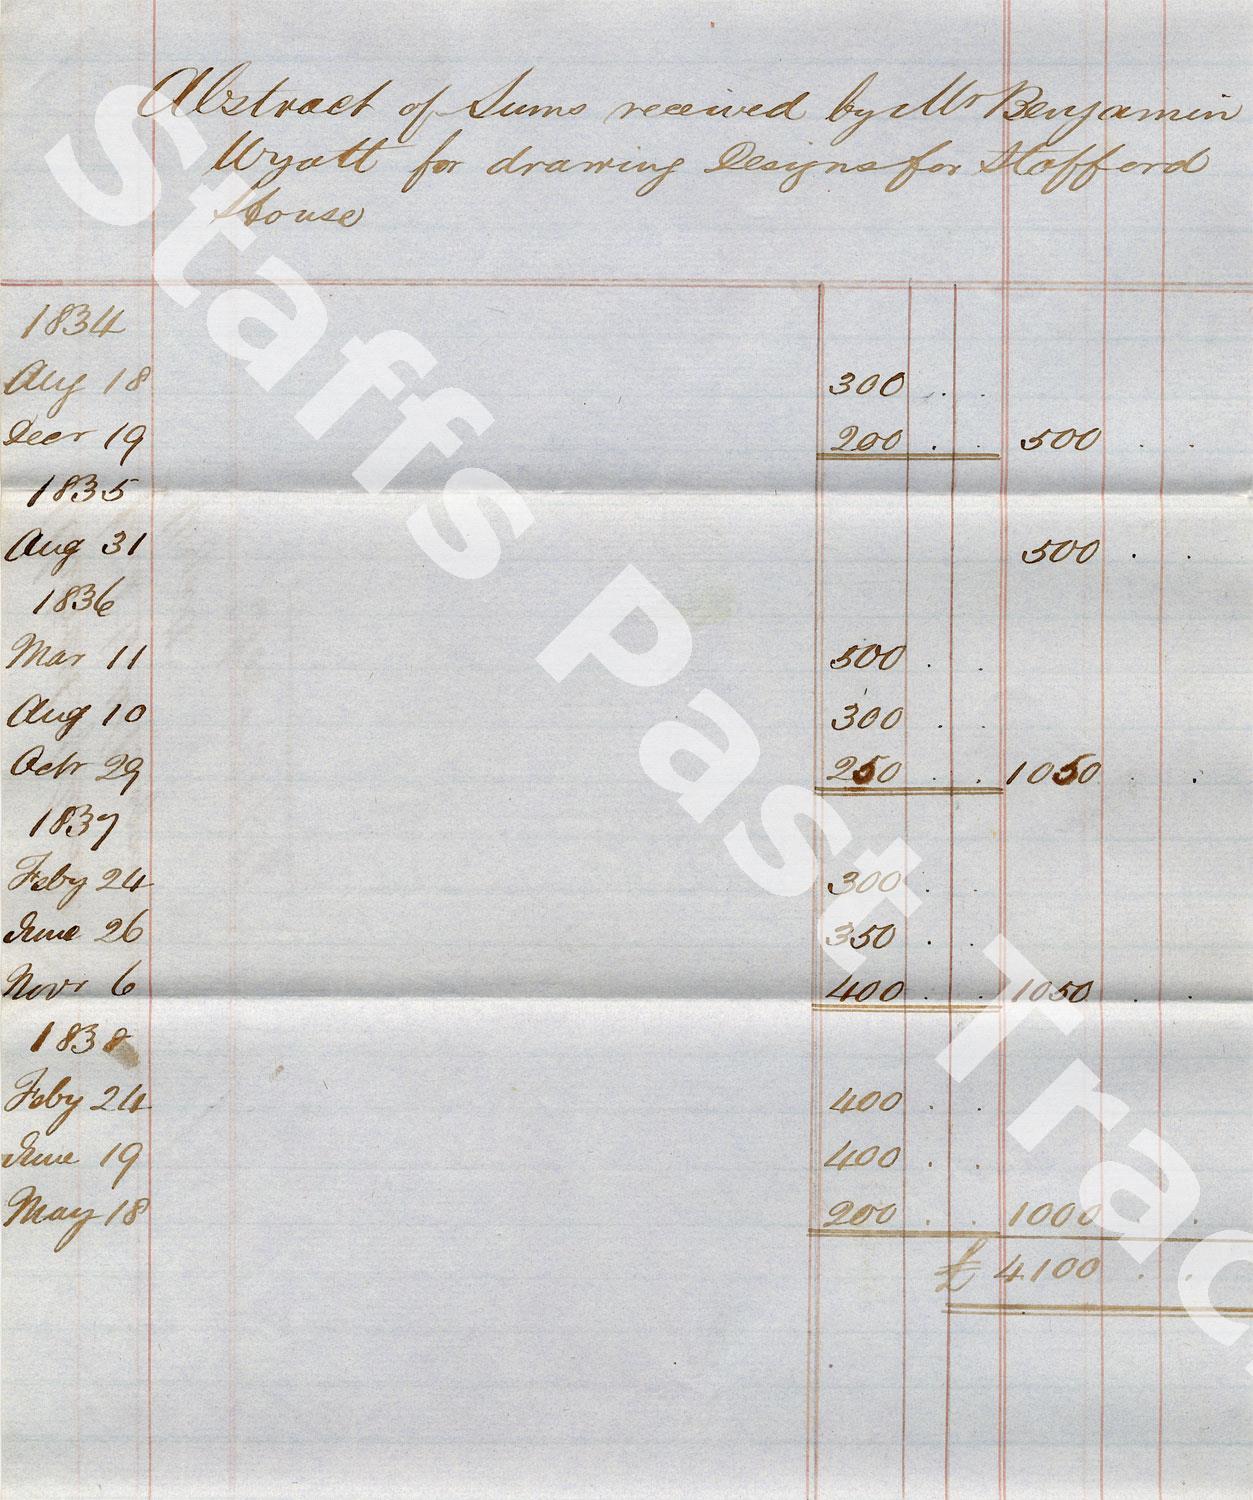 Abstract of Sums received by Mr Benjamin
Wyatt for drawing Designs for Stafford
House
1834
Aug 18 300 . .
Decr 19 200 . . 500 . .
1835
Aug 31 500 . .
1836
Mar 11 500 . .
Aug 10 300 . .
Octr 29 250 . . 1050 . .
1837
Feby 24 300 . .
June 26 350 . .
Novr 6 400 . . 1050 . .
1838
Feby 24 400 . .
June 19 400 . .
May 18 200 . . 1000 . .
£ 4100 . .
Staffs Past Trac